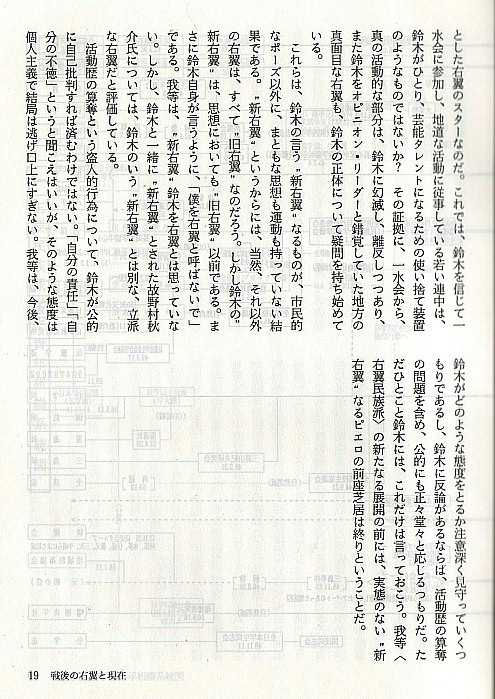 とした右翼のスターなのだ。これでは、鈴木を信じて一
水会に参加し、地道な活動に従事している若い連中は、
鈴木がひとり、芸能タレントになるための使い捨て装置
のようなものではないか? その証拠に、一水会から、
真の活動的な部分は、鈴木に幻滅し、離反しつつあり、
また鈴木をオピニオン・リーダーと錯覚していた地方の
真面目な右翼も、鈴木の正体について疑問を持ち始めて
いる。
これらは、鈴木の言う〝新右翼〟なるものが、市民的
なポーズ以外に、まともな思想も運動も持っていない結
果である。〝新右翼〟というからには、当然、それ以外
の右翼は、すべて〝旧右翼〟なのだろう。しかし鈴木の〝
新右翼〟は、思想においても〝旧右翼〟以前である。ま
さに鈴木自身が言うように、「僕を右翼と呼ばないで」
である。我等は、〝新右翼〟鈴木を右翼とは思っていな
い。しかし、鈴木と一緒に〝新右翼〟とされた故野村秋
介氏については、鈴木のいう〝新右翼〟とは別な、立派
な右翼だと評価している。
活動歴の算奪という盗人的行為について、鈴木が公的
に自己批判すれば済むわけではない。「自分の責任」「自
分の不徳」というと聞こえはいいが、そのような態度は
個人主義で結局は逃げ口上にすぎない。我等は、今後、
鈴木がどのような態度をとるか注意深く見守っていくつ
もりであるし、鈴木に反論があるならば、活動歴の算奪
の問題を含め、公的にも正々堂々と応じるつもりだ。た
だひとこと鈴木には、これだけは言っておこう。我等〈
右翼民族派〉の新たなる展開の前には、実態のない〝新
右翼〟なるピエロの前座芝居は終りということだ。
19 戦後の右翼と現在